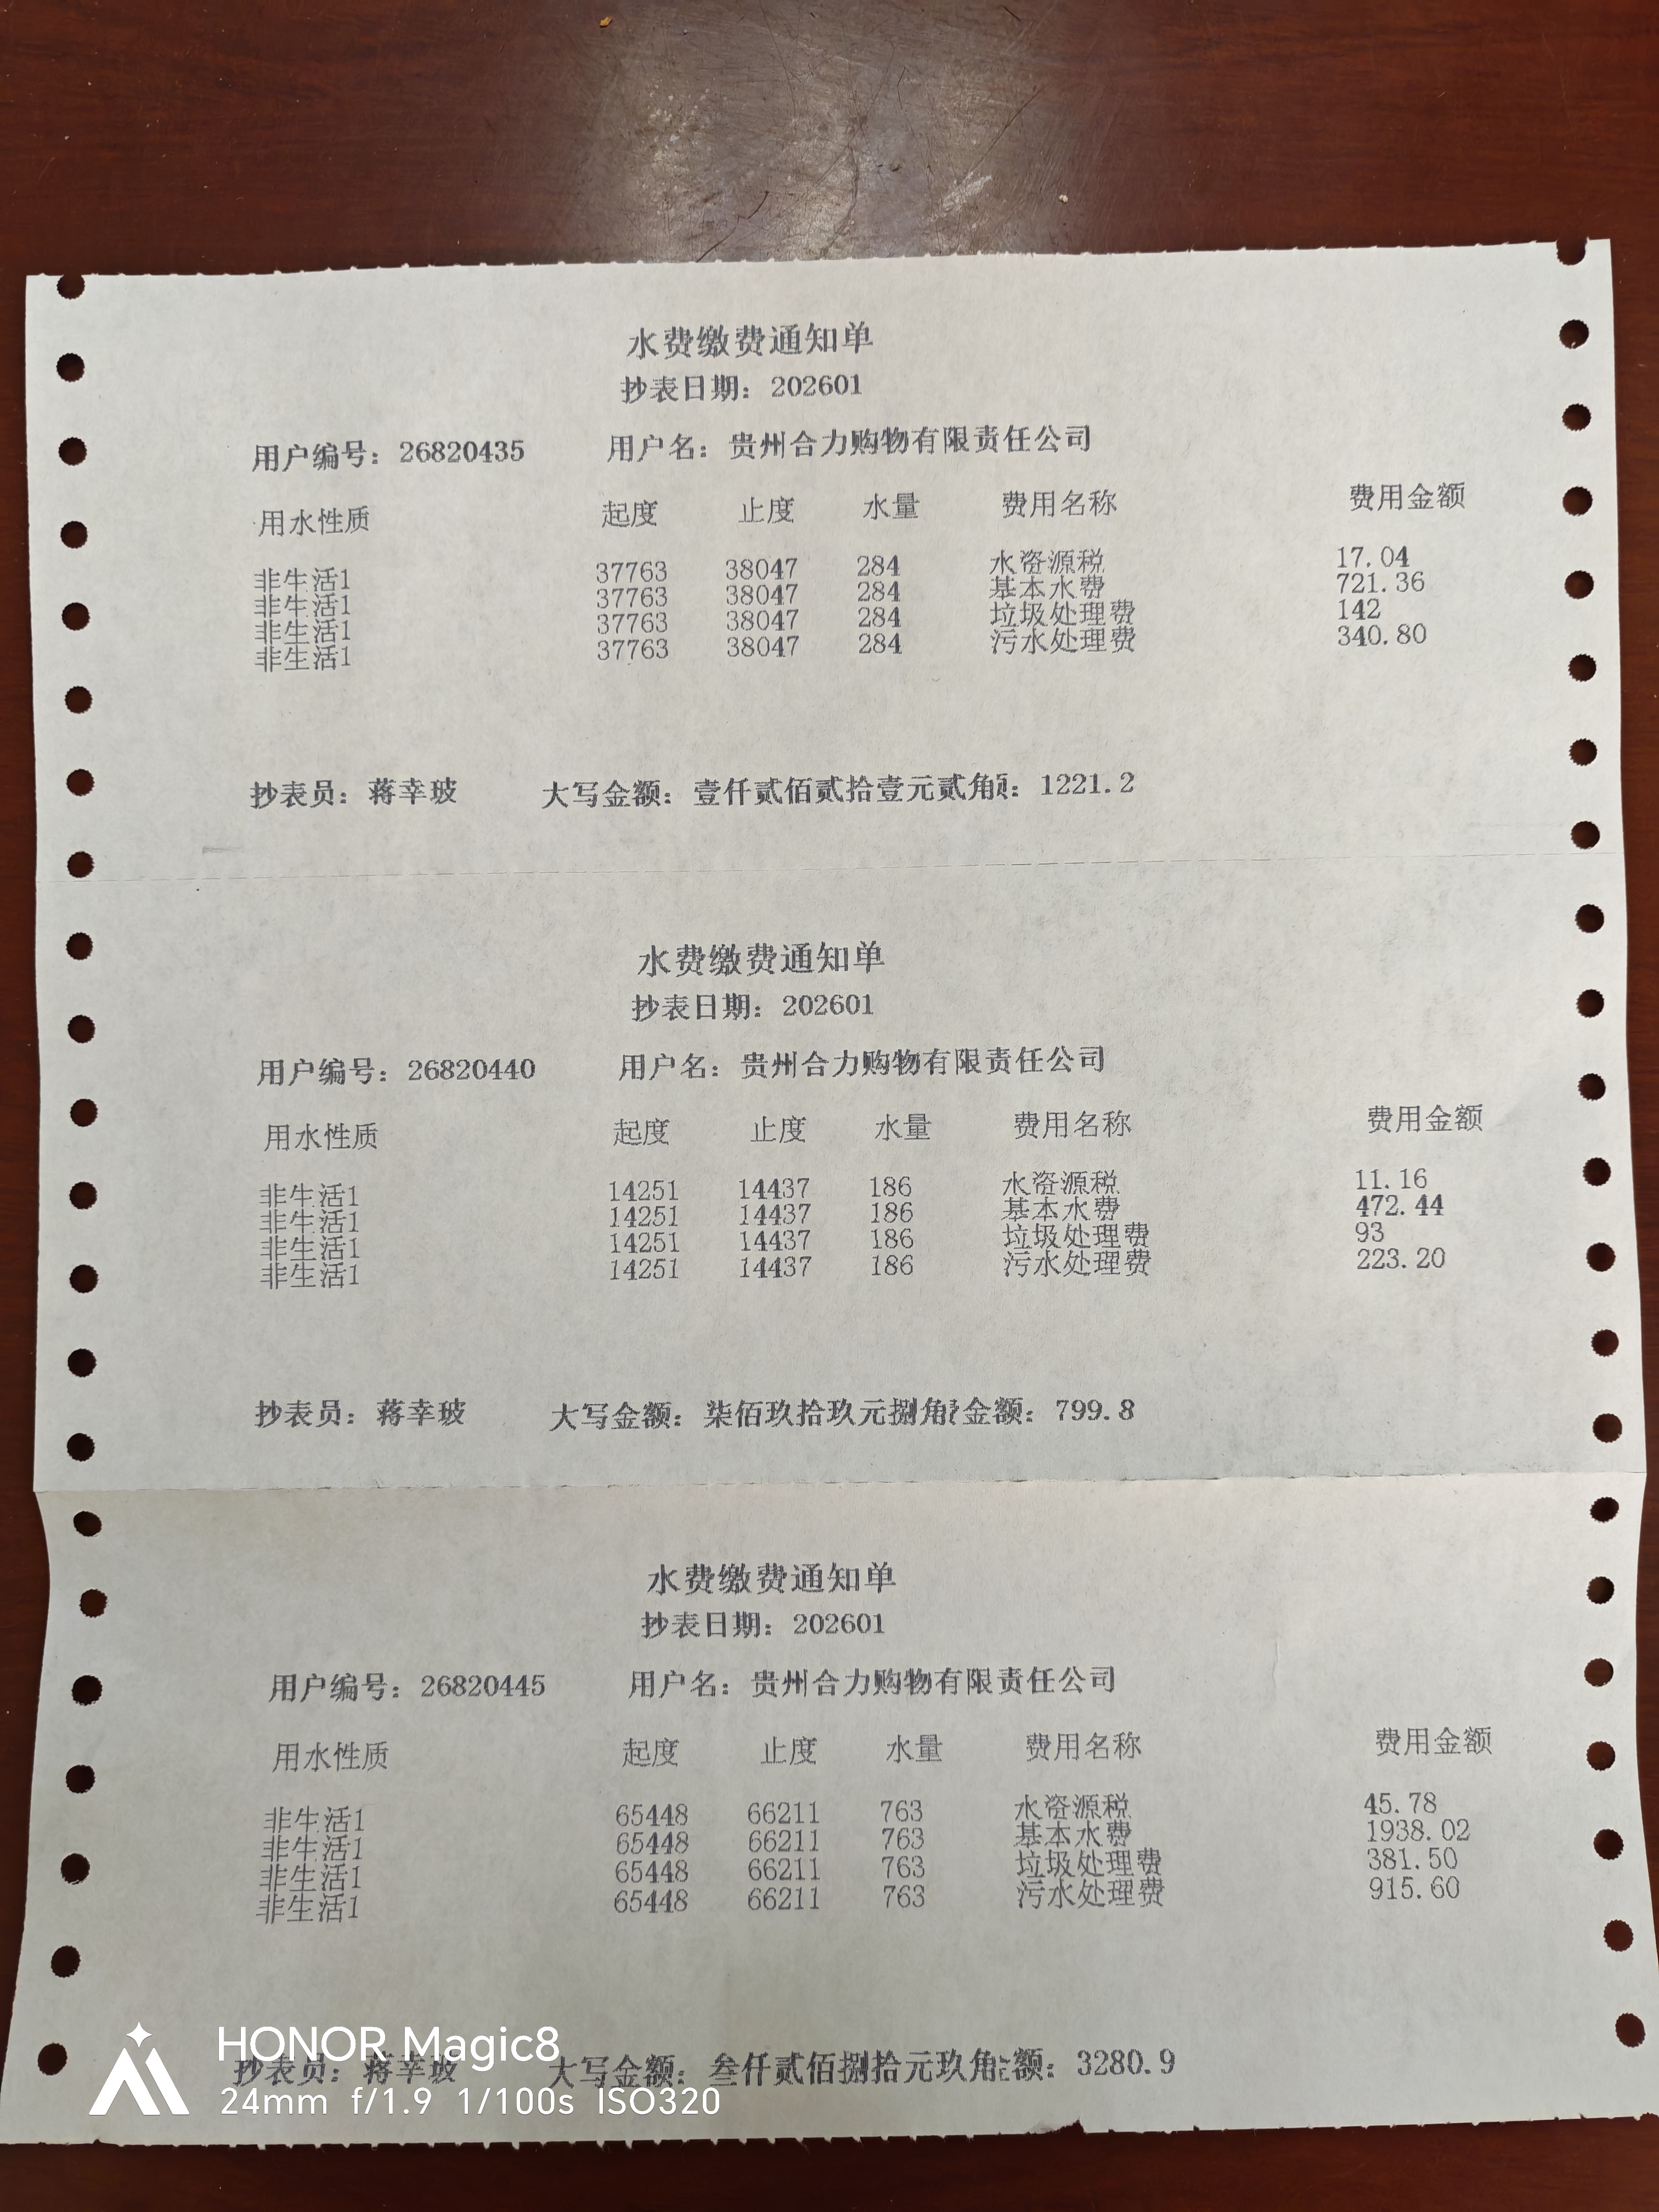 水费缴费通知单
抄表日期：202601
用户编号：26820435 用户名：贵州合力购物有限责任公司
用水性质 起度 止度 水量 费用名称 费用金额
非生活1 37763 38047 284 水资源税 17.04
非生活1 37763 38047 284 基本水费 721.36
非生活1 37763 38047 284 垃圾处理费 142
非生活1 37763 38047 284 污水处理费 340.80
抄表员：蒋幸玻 大写金额：壹仟贰佰贰拾壹元贰角 ：1221.2
水费缴费通知单
抄表日期：202601
用户编号：26820440 用户名：贵州合力购物有限责任公司
用水性质 起度 止度 水量 费用名称 费用金额
非生活1 14251 14437 186 水资源税 11.16
非生活1 14251 14437 186 基本水费 472.44
非生活1 14251 14437 186 垃圾处理费 93
非生活1 14251 14437 186 污水处理费 223.20
抄表员：蒋幸玻 大写金额：柒佰玖拾玖元捌角 金额：799.8
水费缴费通知单
抄表日期：202601
用户编号：26820445 用户名：贵州合力购物有限责任公司
用水性质 起度 止度 水量 费用名称 费用金额
非生活1 65448 66211 763 水资源税 45.78
非生活1 65448 66211 763 基本水费 1938.02
非生活1 65448 66211 763 垃圾处理费 381.50
非生活1 65448 66211 763 污水处理费 915.60
抄表员：蒋幸玻 大写金额：叁仟贰佰捌拾元玖角 额：3280.9
HONOR Magic8
24mm f/1.9 1/100s ISO320